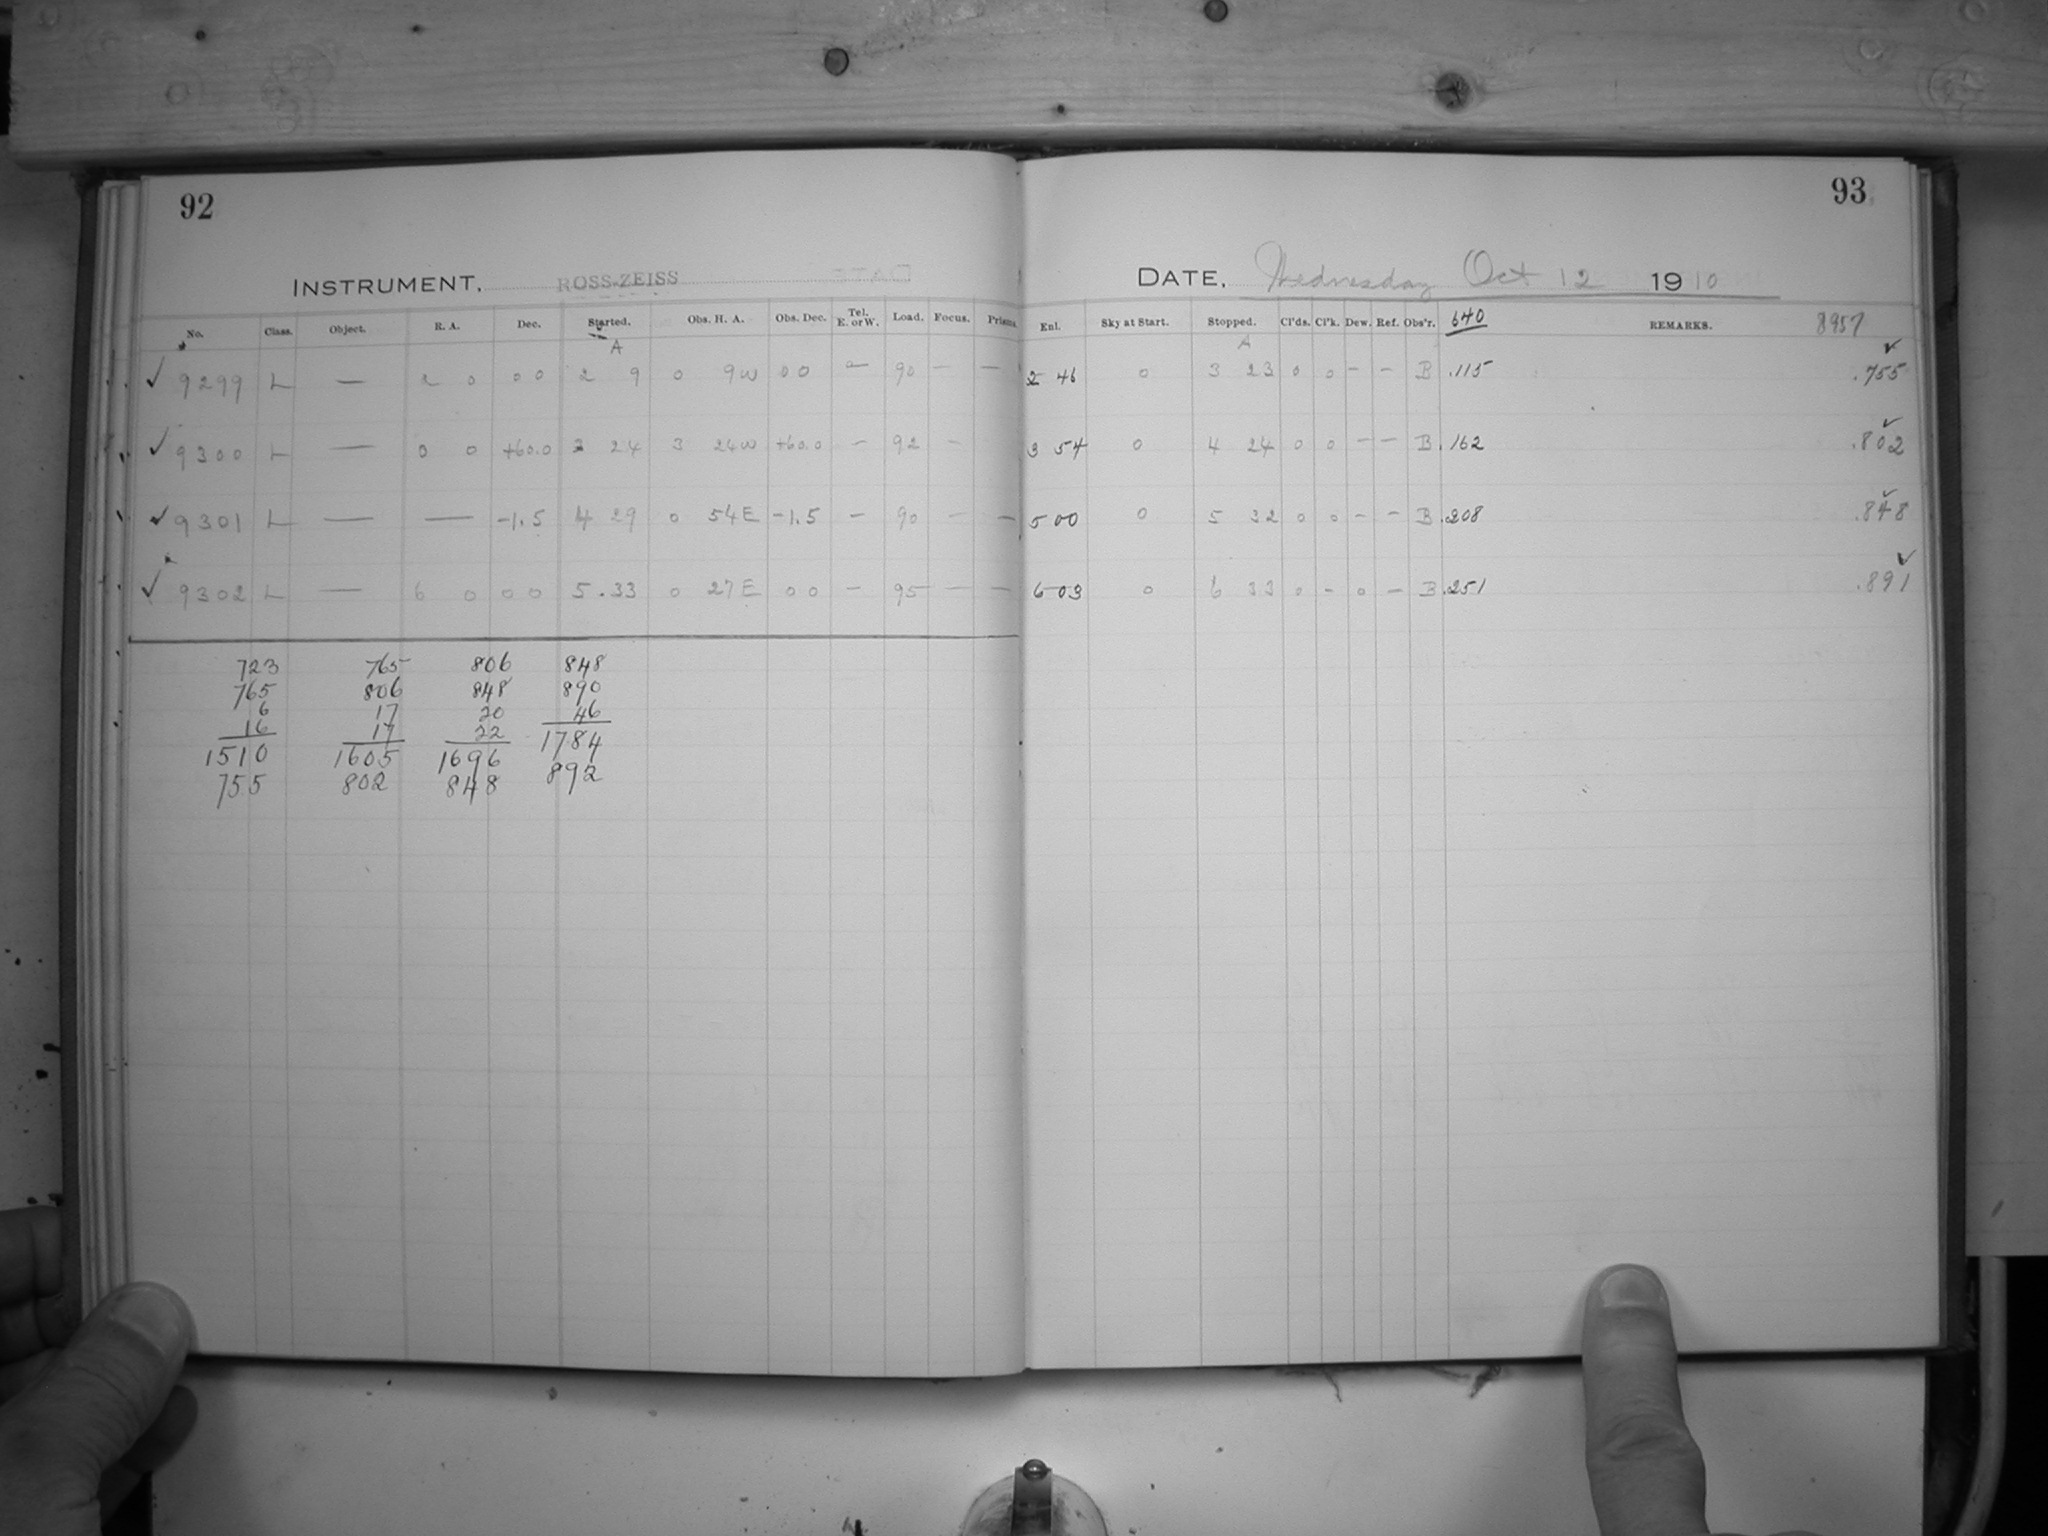 92
INSTRUMENT, ROSS-ZEISS
No. Class. Object. R. A. Dec. Started. Obs. H. A. Obs. Dec. Tel. E. or W. Load. Focus. Prisms.
A
✓ 9299 L — 2 0 00 2 9 0 9W 00 — 90 — —
✓ 9300 L — 0 0 +60.0 3 24 3 24W +60.0 — 92 —
✓ 9301 L — — -1.5 4 29 0 54E -1.5 — 90 — —
✓ 9302 L — 6 0 00 5.33 0 27E 00 — 95 — —
723 765 806 848
765 806 848 890
6 17 20 46
16 17 22
1510 1605 1696 1784
755 802 848 892
93
DATE, Wednesday Oct 12 1910
Enl. Sky at Start. Stopped. Cl'ds. Cl'k. Dew. Ref. Obs'r. 640 REMARKS. 8957
A
2 46 0 3 23 0 0 – – B .115 .755 ✓
3 54 0 4 24 0 0 – – B .162 .802 ✓
5 00 0 5 32 0 0 – – B .208 .848 ✓
6 03 0 6 33 0 – 0 – B .251 .891 ✓